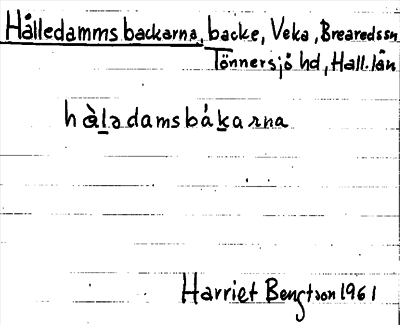 Hålledammsbackarna, backe, Veka, Brearedssn
Tönnersjö hd, Hall. län
hàlədamsbákarna
Harriet Bengtson 1961